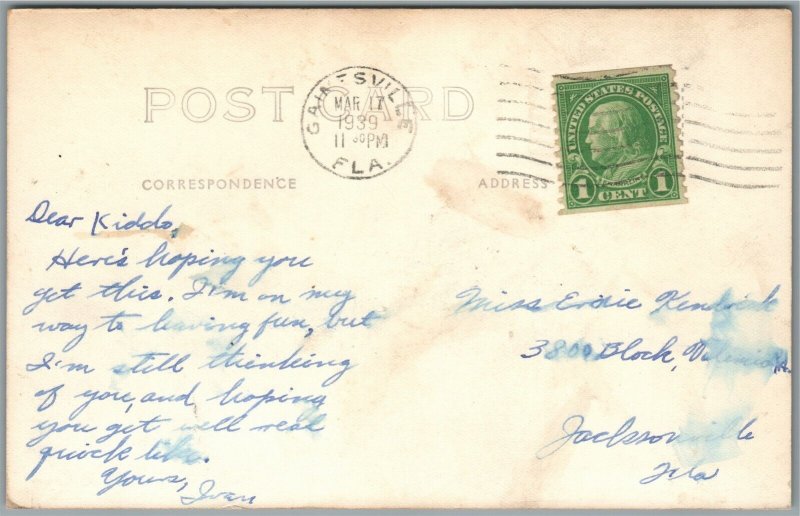 POST CARD
GAINESVILLE
MAR 17
1939
11 30 PM
FLA.
UNITED STATES POSTAGE
FRANKLIN
1 CENT 1
CORRESPONDENCE
ADDRESS
Dear Kiddo,
Here's hoping you
get this. I'm on my
way to having fun, but
I'm still thinking
of you, and hoping
you get well real
quick like.
Yours,
Ivan
Miss Erdie Kendrick
3800 Block, Valencia
Jacksonville
Fla